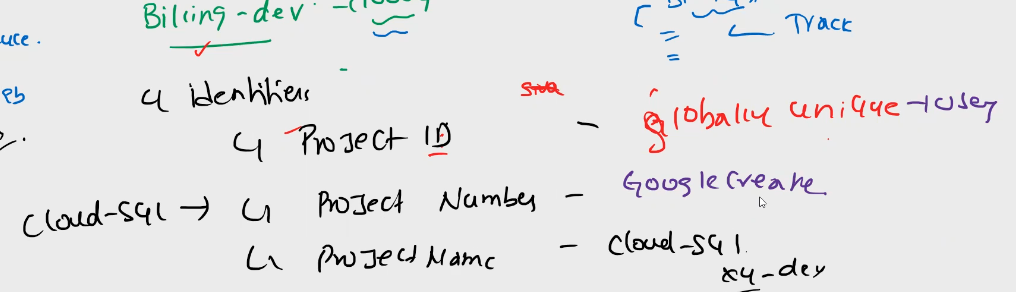 Billing-dev
Track
uce.
identifiers
eb
Project ID - globally unique → User
Cloud-SQl → Project Number - Google Create
Project Name - Cloud-SQl.
xy-dev